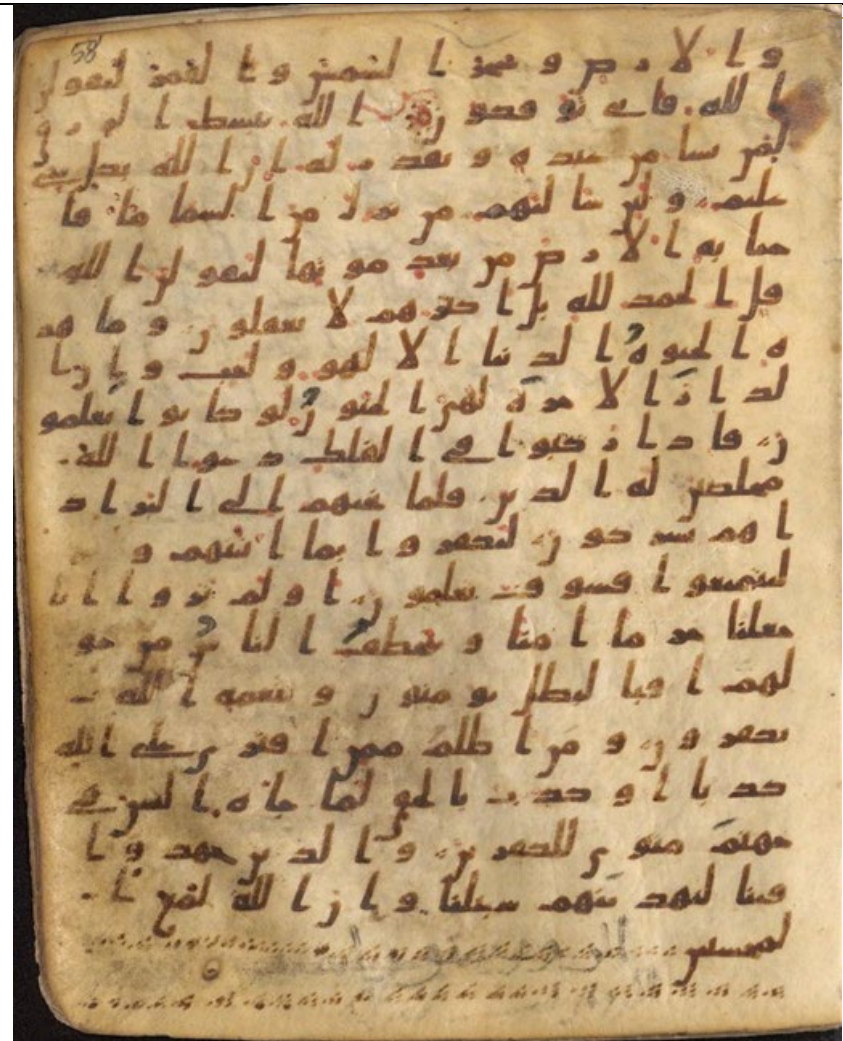 58
والارض وسخر الشمس والقمر ليقولن
الله فانى يوفكون الله يبسط الرزق
لمن يشا من عبده ويقدر له ان الله بكل شي
عليم ولين سالتهم من نزل من السما ما فا
حيا به الارض من بعد موتها ليقولن الله
قل الحمد لله بل اكثرهم لا يعقلون وما هذ
ه الحيوه الدنيا الا لهو ولعب وان ا
لدار الاخره لهي الحيون لو كانوا يعلمو
ن فاذا ركبوا في الفلك دعوا الله
مخلصين له الدين فلما نجيهم الى البر اذ
ا هم يشركون ليكفروا بما اتينهم و
ليتمتعوا فسوف يعلمون اولم يروا انا
جعلنا حرما امنا ويتخطف الناس من حو
لهم افبالبطل يومنون وبنعمه الله
يكفرون ومن اظلم ممن افترى على الله
كذبا او كذب بالحق لما جاه اليس في
جهنم مثوى للكفرين والذين جهدوا
فينا لنهدينهم سبلنا وان الله لمع ا
لمحسنين